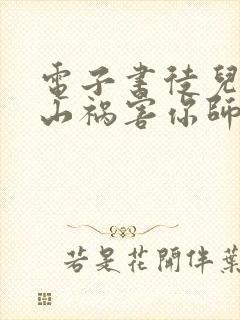 電子書徒兒
山禍害你師
若是花開伴葉